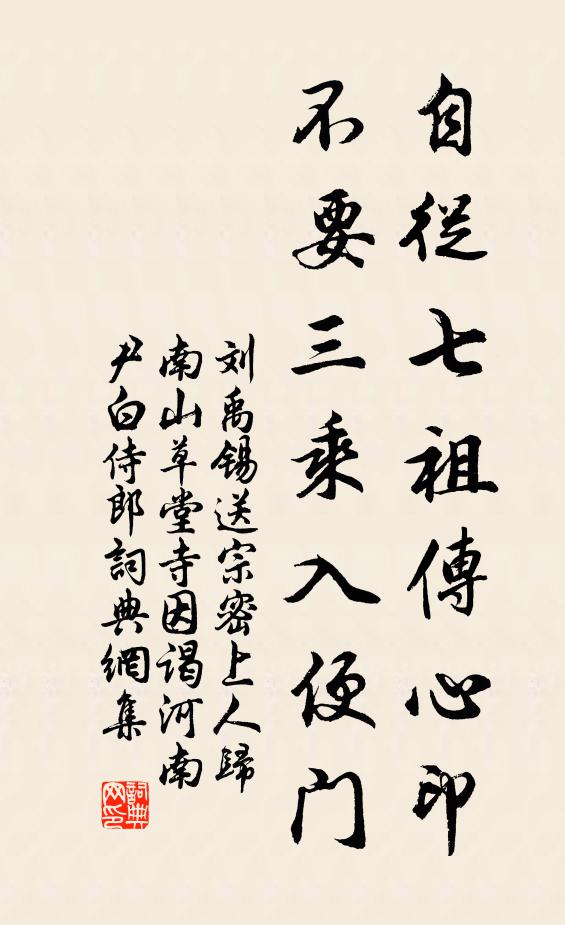 自從七祖傳心印
不要三乘入便門
刘禹錫送宗密上人歸
南山草堂寺因谒河南
尹白侍郎詞典網集
詞典
网印